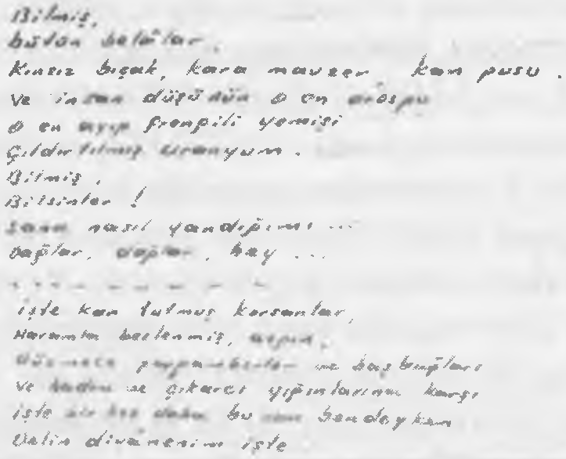 Bilmiş,
bütün belâlar.
Kınsız bıçak, kara mavzer, kan pusu.
Ve insan düşüdnün o en orospu
o en ayıp frenpili yemişi
Çıldırtılmış uranyum.
Bilmiş,
Bilsinler!
sana nasıl yandığımı...
Dağlar, dağlar, hey...
- - - - - - - -
işte kan tutmuş korsanlar,
Haramla beslenmiş, azgın,
ve başbuğları
ve çıkarcı yığınlarına karşı
işte bir kez daha bu can bendeyken
Delin divânenim işte